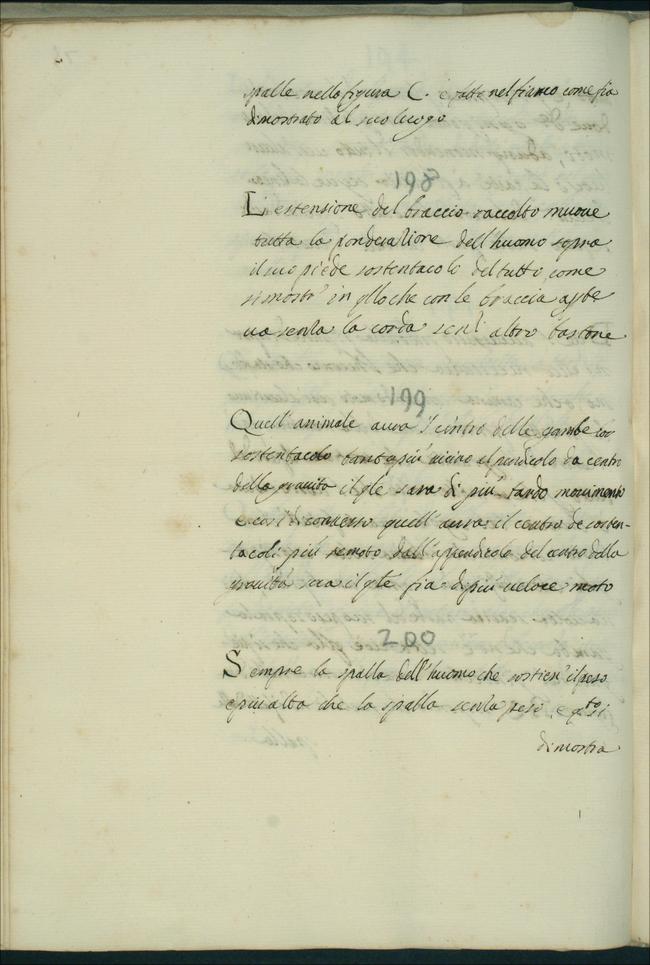 spalle nella figura C. è fatto nel fianco come fia
dimostrato al suo luogo
198
L'estensione del braccio raccolto muoue
tutta la ponderatione dell'huomo sopra
il suo piede sostentacolo del tutto come
si mostr' in qllo che con le braccia aꝑte
ua senza la corda senz' altro bastone
199
Quell'animale aurà 'l centro delle gambe
sostentacolo tanto più uicino al pendicolo da centro
della grauità il qle sara di più tardo mouimento
e cosi di conuerso quell' aura il centro de sosten-
tacoli più remoto dall'appendicolo del centro della
grauità sua il qle fia di più ueloce moto
200
Sempre la spalla dell'huomo che sostien' il peso
e più alta che la spalla senza peso e qto si
dimostra